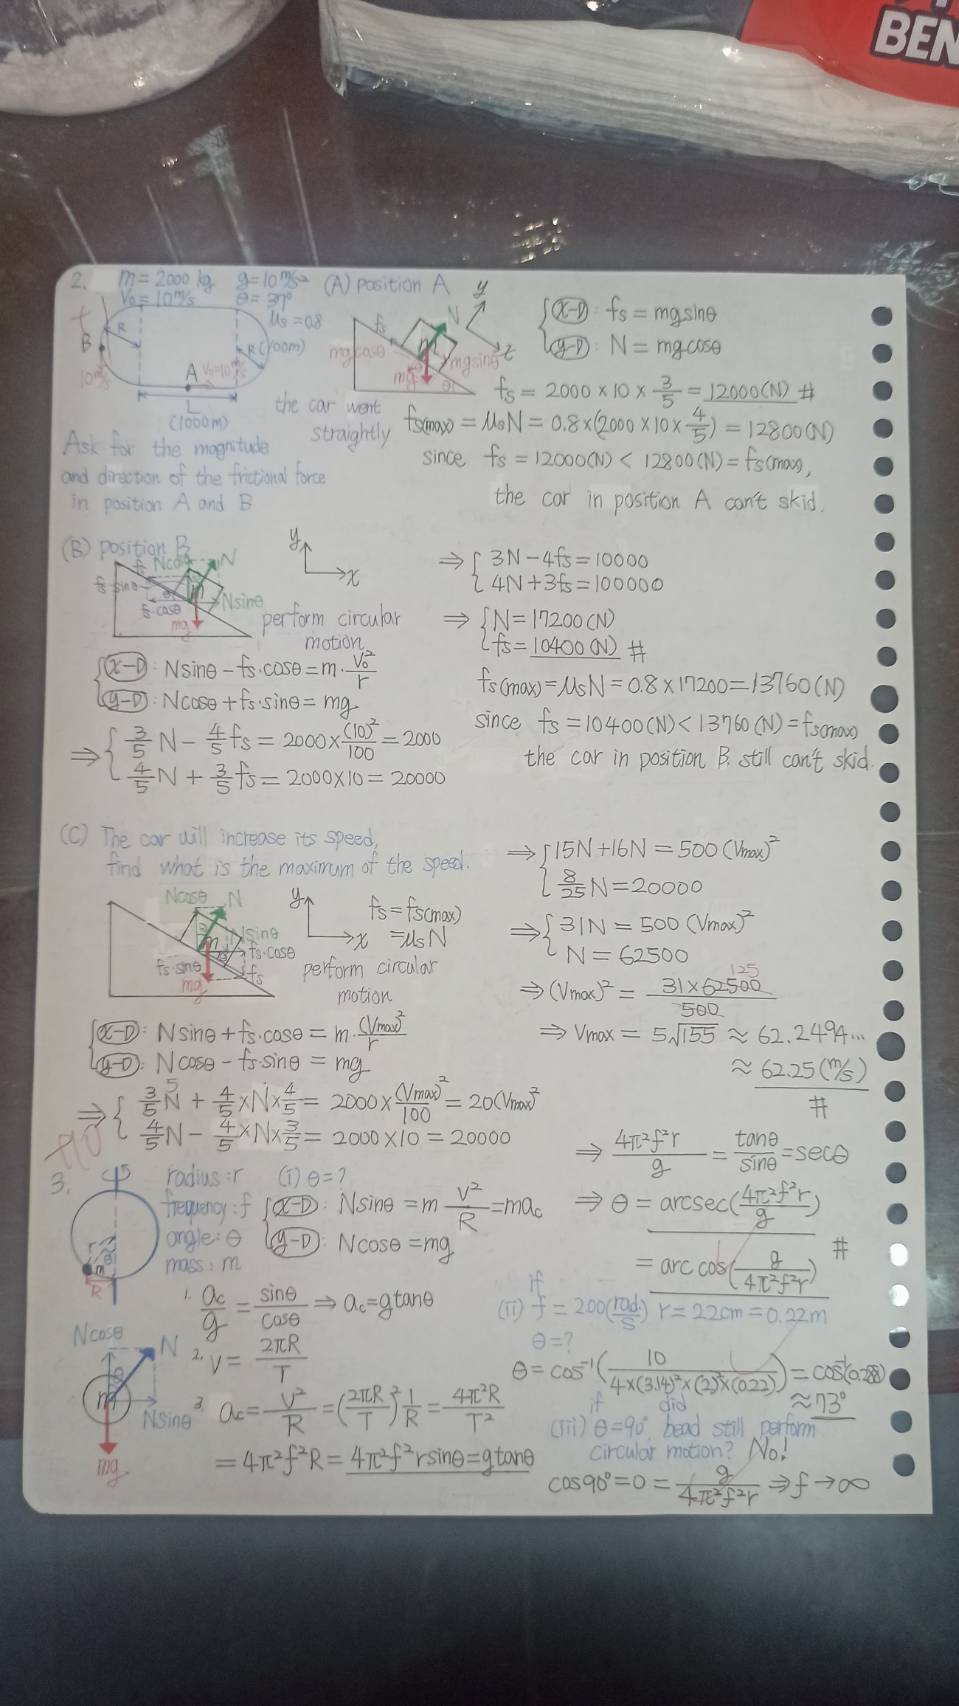 BEN
2. m = 2000 kg g = 10 m/s² (A) position A
V₀ = 10 m/s θ = 37°
μs = 0.8
B R R (100m)
10 m/s A V₀=10 m/s
L
(1000m)
y N fs m x
mgcosθ mgsinθ
mg θ
the car went
straightly
Ask for the magnitude
and direction of the frictional force
in position A and B
{ (x-D): fs = mgsinθ
(y-D): N = mgcosθ
fs = 2000 × 10 × 3/5 = 12000(N) #
fs(max) = μsN = 0.8 × (2000 × 10 × 4/5) = 12800(N)
since fs = 12000(N) < 12800(N) = fs(max),
the car in position A can't skid.
(B) position B
Ncosθ N
fs
fs·sinθ
fs·cosθ Nsinθ
mg
y x
perform circular
motion
{ (x-D): Nsinθ - fs·cosθ = m·V₀²/r
(y-D): Ncosθ + fs·sinθ = mg
⇒ { 3/5 N - 4/5 fs = 2000 × (10)²/100 = 2000
4/5 N + 3/5 fs = 2000×10 = 20000
⇒ { 3N - 4fs = 10000
4N + 3fs = 100000
⇒ { N = 17200(N)
fs = 10400(N) #
fs(max) = μsN = 0.8 × 17200 = 13760(N)
since fs = 10400(N) < 13760(N) = fs(max)
the car in position B. still can't skid.
(C) The car will increase its speed,
find what is the maximum of the speed.
Ncosθ N
Nsinθ
fs·cosθ
fs·sinθ fs
mg
y x
fs = fs(max)
= μsN
perform circular
motion
{ (x-D): Nsinθ + fs·cosθ = m·(Vmax)²/r
(y-D): Ncosθ - fs·sinθ = mg
⇒ { 3/5 N + 4/5 × N × 4/5 = 2000 × (Vmax)²/100 = 20(Vmax)²
4/5 N - 4/5 × N × 3/5 = 2000 × 10 = 20000
⇒ { 15N + 16N = 500 (Vmax)²
8/25 N = 20000
⇒ { 31N = 500 (Vmax)²
N = 62500
⇒ (Vmax)² = 31×62500/500 125
⇒ Vmax = 5√155 ≈ 62.2494...
≈ 62.25(m/s)
#
3. radius: r (i) θ = ?
frequency: f
angle: θ
mass: m
r θ m R
{ (x-D): Nsinθ = m V²/R = mac
(y-D): Ncosθ = mg
1. ac/g = sinθ/cosθ ⇒ ac = gtanθ
2. V = 2πR/T
3. ac = V²/R = (2πR/T)² 1/R = 4π²R/T²
= 4π²f²R = 4π²f²rsinθ = gtanθ
Ncosθ N
m
Nsinθ
mg
⇒ 4π²f²r/g = tanθ/sinθ = secθ
⇒ θ = arcsec(4π²f²r/g)
= arc cos(g/4π²f²r) #
(ii) if f = 200(rad./s) r = 22cm = 0.22m
θ = ?
θ = cos⁻¹(10/4×(3.14)²×(2)²×(0.22)) = cos⁻¹(0.288)
≈ 73°
(iii) if θ = 90°, did bead still perform
circular motion? No!
cos90° = 0 = g/4π²f²r ⇒ f → ∞